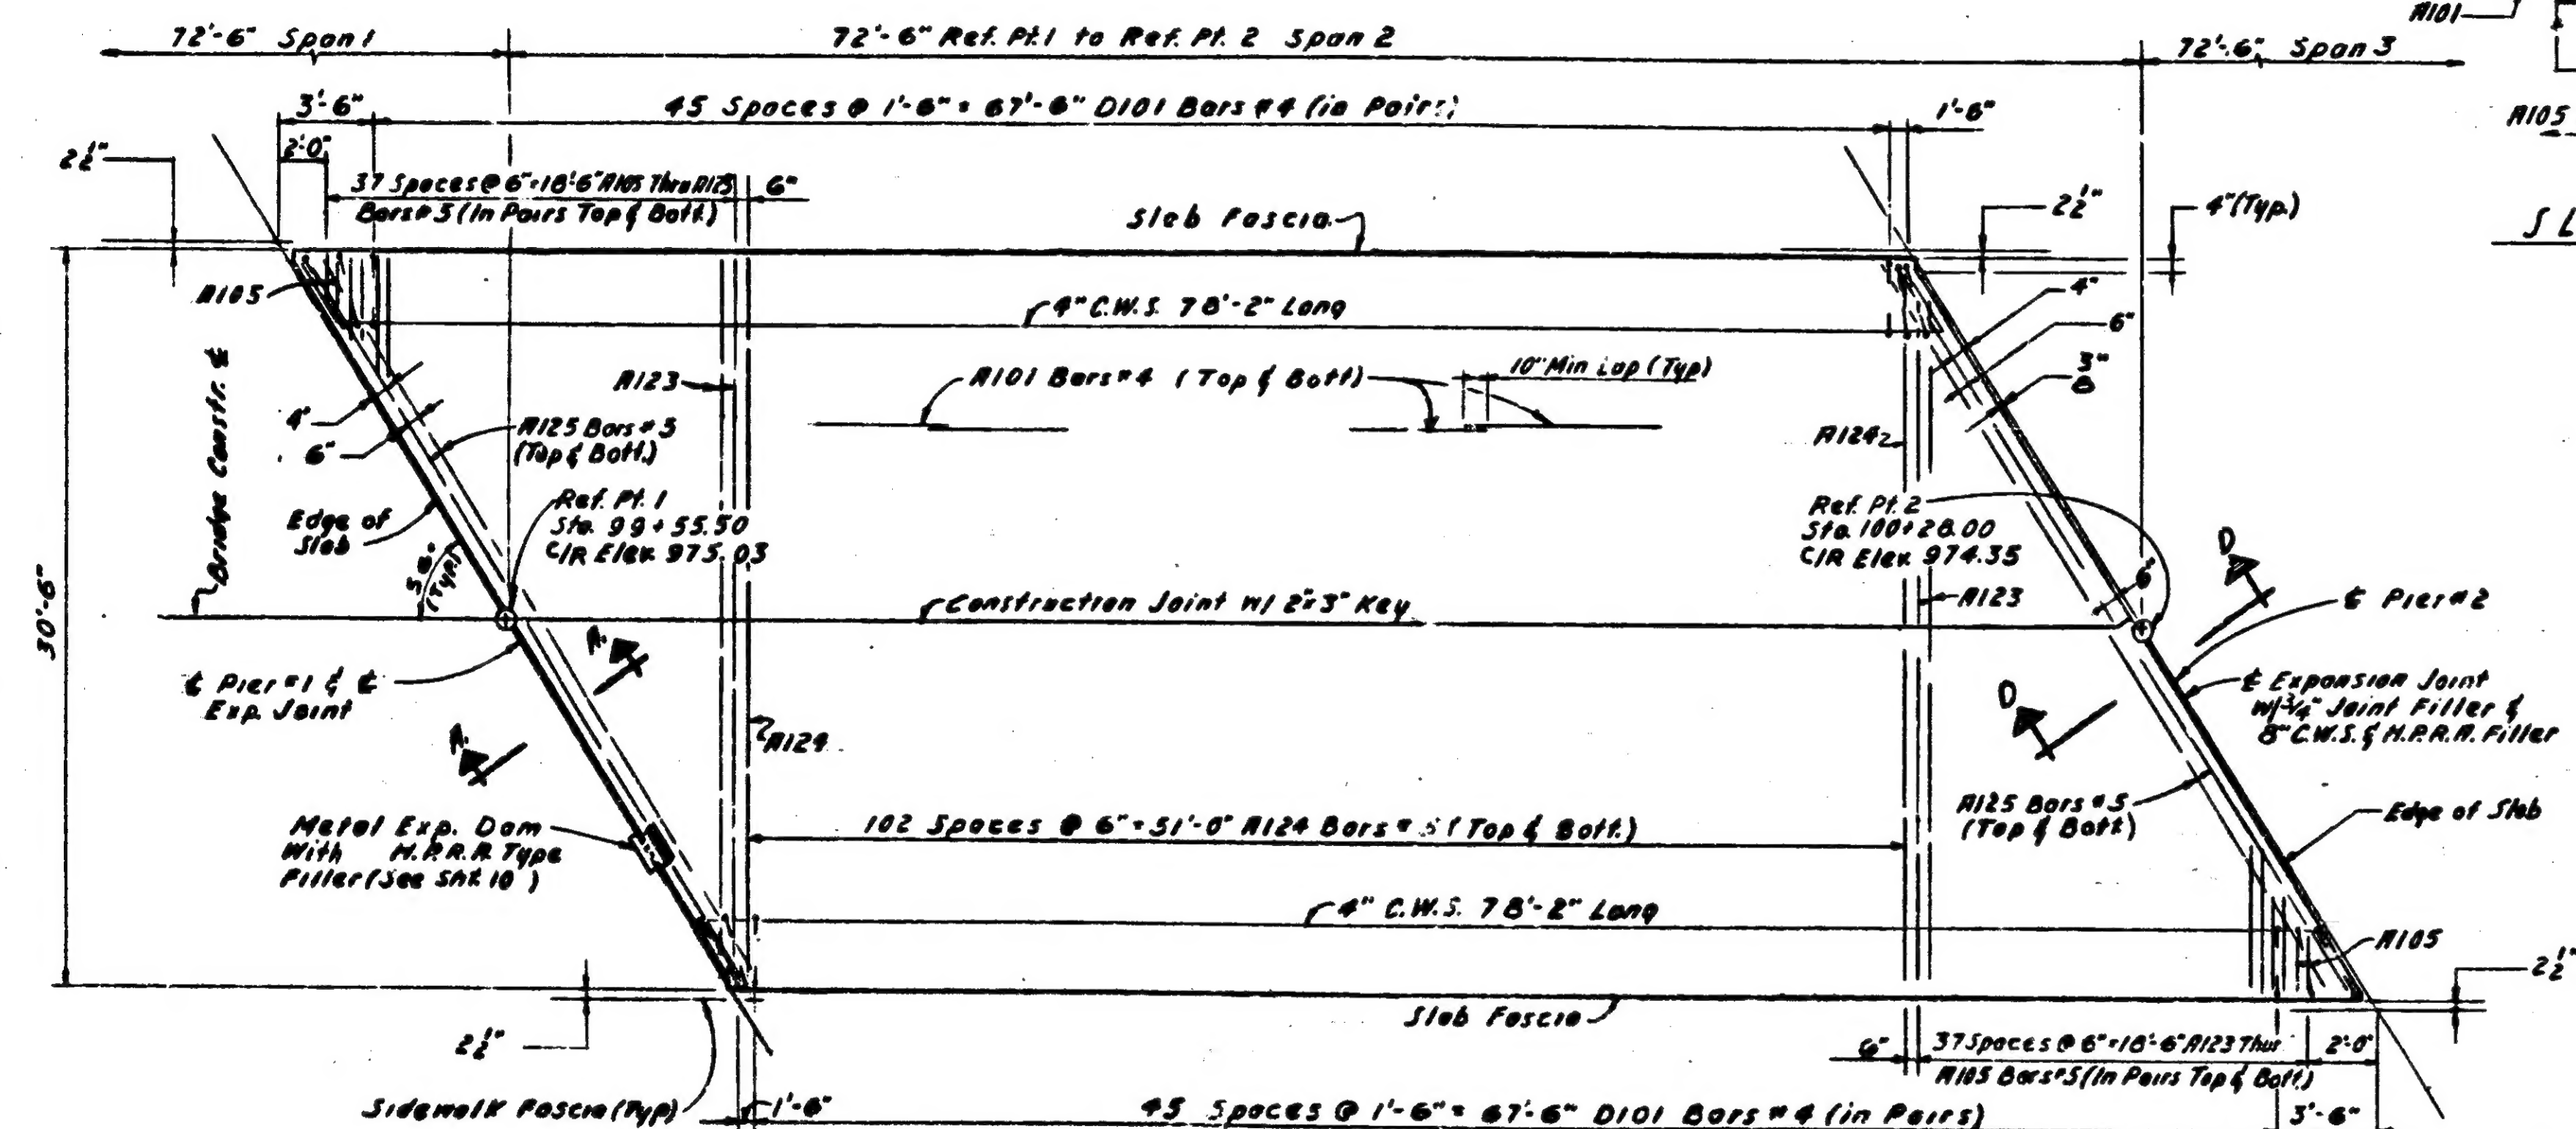 72'-6" Span 1
72'-6" Ref. Pt. 1 to Ref. Pt. 2 Span 2
72'-6" Span 3
A101
3'-6"
45 Spaces @ 1'-6" = 67'-6" D101 Bars #4 (in Pairs)
1'-6"
A105
2'-0"
2½"
37 Spaces @ 6" = 18'-6" A105 Thru A123
6"
Bars #5 (In Pairs Top & Bott.)
Slab Fascia
2½"
4" (Typ.)
S L
A105
4" C.W.S. 78'-2" Long
4"
6"
3/8"
A123
A101 Bars #4 (Top & Bott)
10" Min Lap (Typ)
Bridge Constr. ℄
4"
6"
A125 Bars #5
(Top & Bott.)
A124
Edge of
Slab
Ref. Pt. 1
Sta. 99+55.50
C/R Elev. 975.03
Ref. Pt. 2
Sta. 100+28.00
C/R Elev. 974.35
58°
(Typ.)
30'-6"
Construction Joint W/ 2"x3" Key
A123
6"
D
℄ Pier #2
℄ Pier #1 & ℄
Exp. Joint
A
A
D
℄ Expansion Joint
W/ 3/4" Joint Filler &
8" C.W.S. & H.P.R.A. Filler
A124
Metal Exp. Dam
With H.P.R.A. Type
Filler (See Sht. 10)
102 Spaces @ 6" = 51'-0" A124 Bars #5 (Top & Bott.)
A125 Bars #5
(Top & Bott)
Edge of Slab
4" C.W.S. 78'-2" Long
A105
2½"
Slab Fascia
2½"
6"
37 Spaces @ 6" = 18'-6" A123 Thur
2'-0"
A105 Bars #5 (In Pairs Top & Bott.)
Sidewalk Fascia (Typ)
1'-6"
45 Spaces @ 1'-6" = 67'-6" D101 Bars #4 (in Pairs)
3'-6"